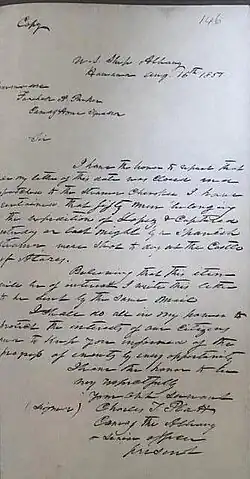 Copy
146
U.S. Ship Albany
Havana Aug. 16th 1851
Commodore
Foxhall A. Parker
Comdg Home Squadron
Sir
I have the honor to report that
my letter of this date was closed and
to the steamer Cherokee I have
that fifty men belonging
the expedition of Lopez & Captured
or last night by a Spanish
were shot to day at the Castle
of Atares.
Believing that this item
will be of interest I write this letter
to be sent by the same mail
I shall do all in my power to
protect the interests of our Citizens
and to keep you informed of the
progress of events by every opportunity
I have the honor to be
very respectfully
Your Obt Servant
(Signed) Charles T. Platt
Comdg the Albany
& Senior officer
present